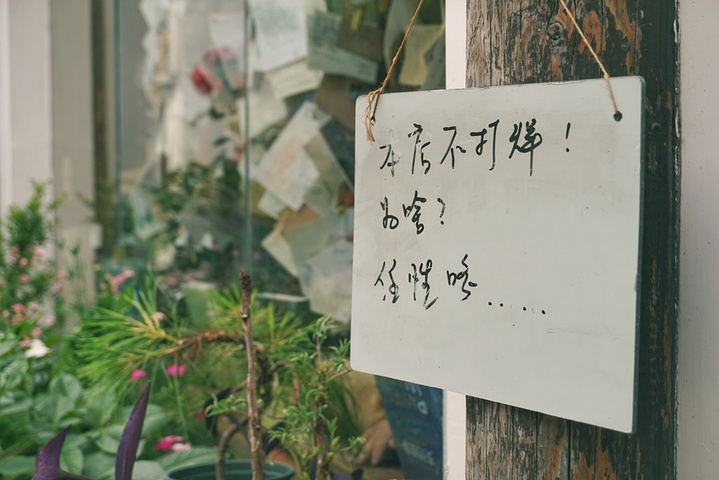 本店不打烊！
为啥？
任性咯……